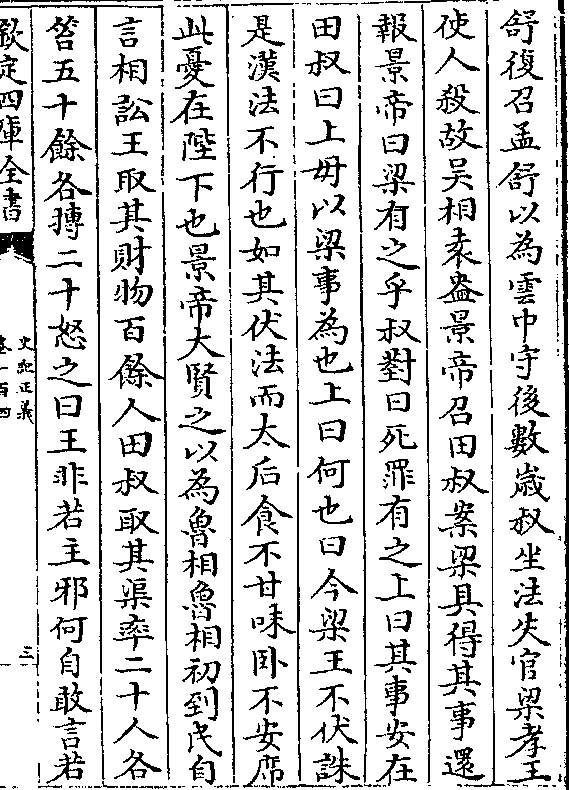 舒復召孟舒以為雲中守後數歲叔坐法失官梁孝王
使人殺故吳相袁盎景帝召田叔案梁具得其事還
報景帝曰梁有之乎叔對曰死罪有之上曰其事安在
田叔曰上毋以梁事為也上曰何也曰今梁王不伏誅
是漢法不行也如其伏法而太后食不甘味卧不安席
此憂在陛下也景帝大賢之以為魯相魯相初到民自
言相訟王取其財物百餘人田叔取其渠率二十人各
笞五十餘各搏二十怒之曰王非若主邪何自敢言若
欽定四庫全書
史記正義
卷一百四
三